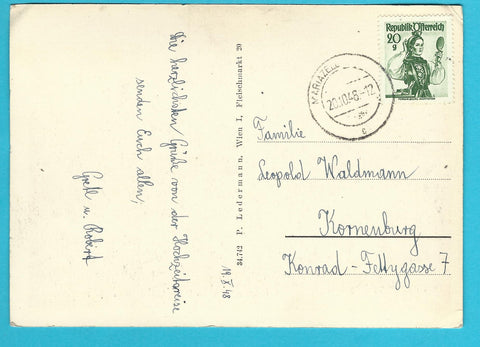 Die herzlichsten Grüße von der Hochzeitsreise
senden Euch allen,
Gretl u. Robert
34752 P. Ledermann, Wien I, Fleischmarkt 20
19.X.48
MARIAZELL
20.10.48-12
c
Republik Österreich
20
g
Familie
Leopold Waldmann
Korneuburg
Konrad-Fettygasse 7